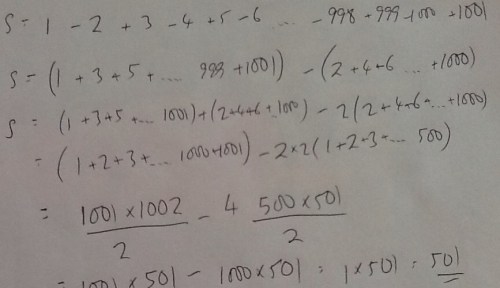 S = 1 - 2 + 3 - 4 + 5 - 6 ... - 998 + 999 - 1000 + 1001
S = (1 + 3 + 5 + .... 999 + 1001) - (2 + 4 + 6 ... + 1000)
S = (1 + 3 + 5 + ... 1001) + (2 + 4 + 6 + ... 1000) - 2(2 + 4 + 6 + ... + 1000)
= (1 + 2 + 3 + ... 1000 + 1001) - 2 × 2(1 + 2 + 3 + ... 500)
= 1001 × 1002 / 2 - 4 500 × 501 / 2
= 1001 × 501 - 1000 × 501 = 1 × 501 = 501